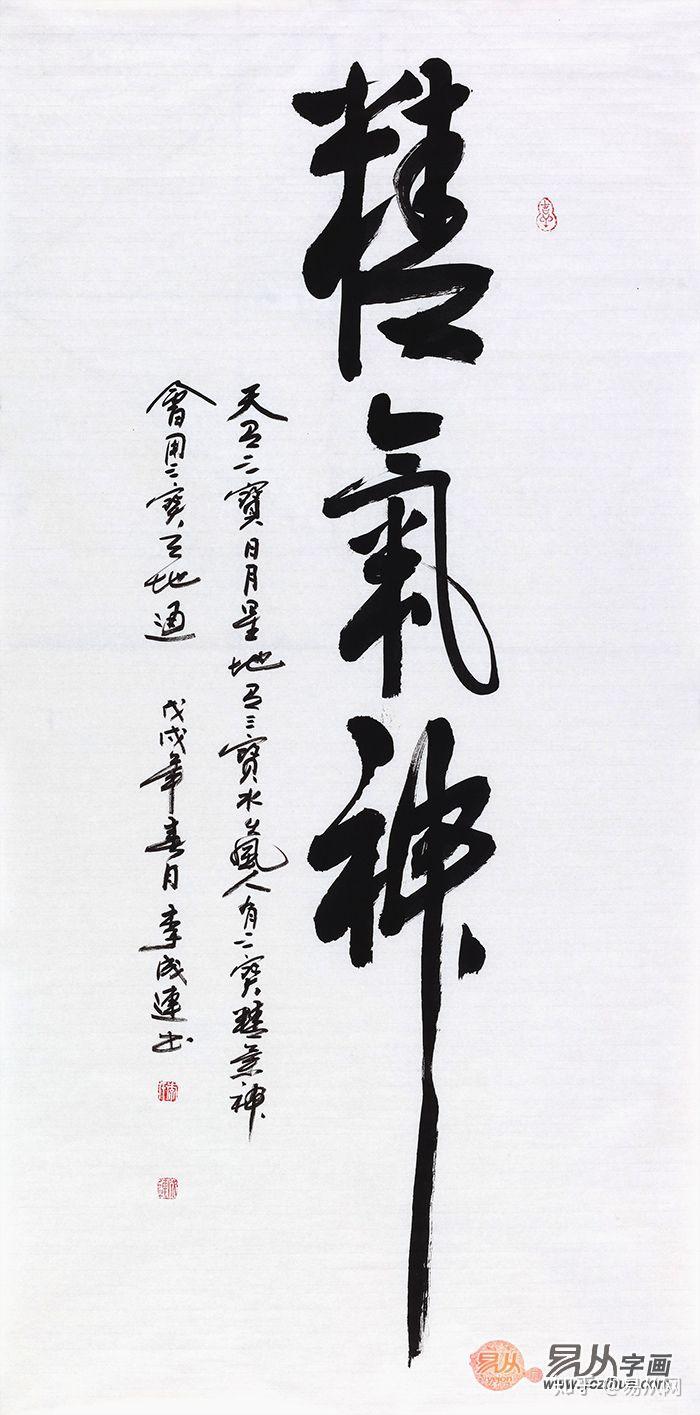 精氣神
天有三寶日月星地有三寶水火風人有三寶精氣神
會用三寶天地通 戊戌年春月李成連书
易从字画
知乎 @易从网